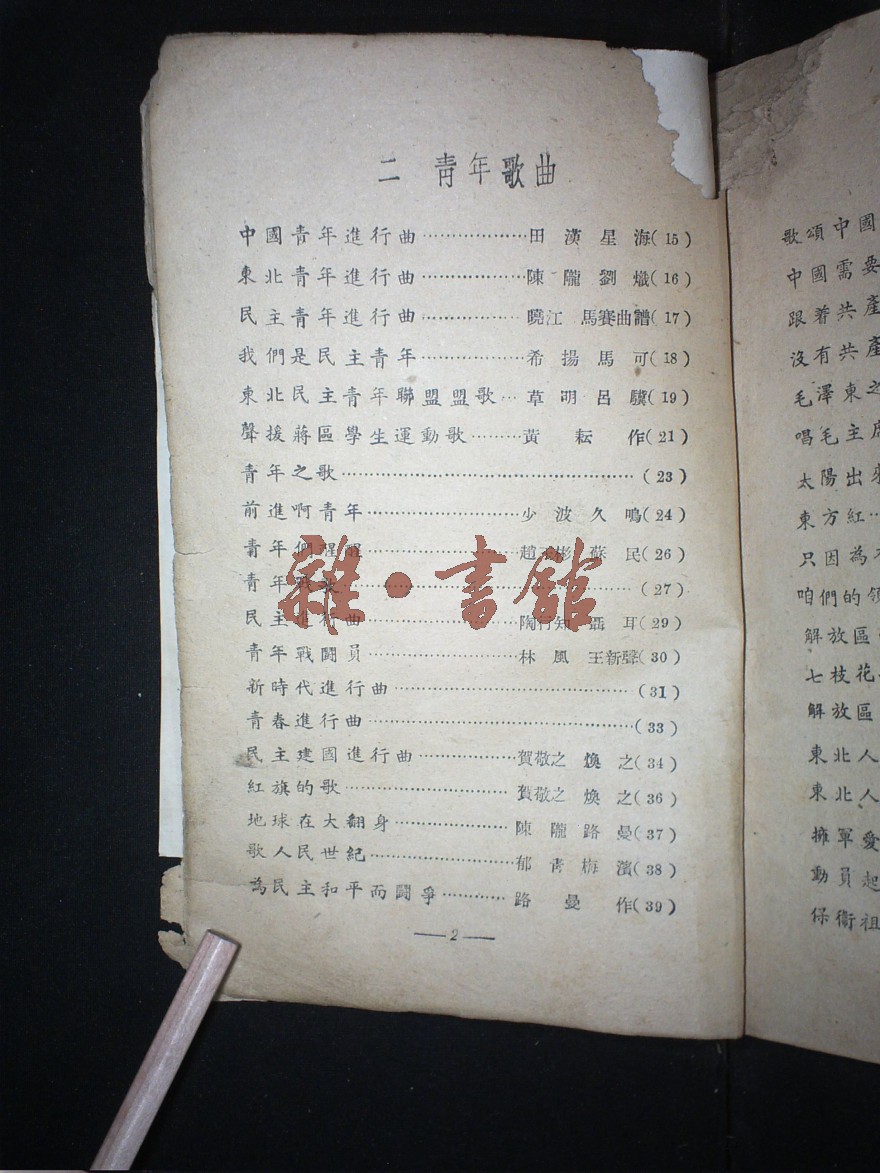 二 青年歌曲
中國青年進行曲………………田漢星海(15)
東北青年進行曲……………陳隴劉熾(16)
民主青年進行曲……………曉江 馬賽曲譜(17)
我們是民主青年……………希揚馬可(18)
東北民主青年聯盟盟歌…草明呂驥(19)
聲援蔣區學生運動歌………黃耘作(21)
青年之歌………………………………………(23)
前進啊青年……………………少波久鳴(24)
青年們醒醒……………………趙 彬蘇民(26)
青年 歌………………………………………(27)
民主進行曲……………………陶行知 聶耳(29)
青年戰鬪員……………………林風 王新聲(30)
新時代進行曲………………………………(31)
青春進行曲……………………………………(33)
民主建國進行曲……………賀敬之 煥之(34)
紅旗的歌………………………賀敬之 煥之(36)
地球在大翻身………………陳隴路曼(37)
歌人民世紀……………………郁青梅濱(38)
為民主和平而鬪爭…………路曼作(39)
—2—
雜·書館
歌頌中國
中國需要
跟着共產
沒有共產
毛澤東之
唱毛主席
太陽出來
東方紅…
只因為
咱們的領
解放區
七枝花
解放區
東北人
東北人
擁軍愛
動員起
保衛祖